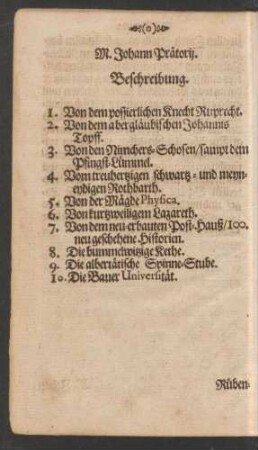 (o)
M. Johann Prätorij.
Beschreibung.
1. Von dem possierlichen Knecht Ruprecht.
2. Von dem abergläubischen Johannis
Topff.
3. Von den Nimmers-Schosen/sampt dem
Pfingst-Lümmel.
4. Vom treuhertzigen schwartz- und meyn-
eydigen Rothbarth.
5. Von der Mägde Physica.
6. Von kurtzweiligem Lazareth.
7. Von dem neu-erbauten Post-Hauß/100.
neu geschehene Historien.
8. Die hümmelwitzige Kethe.
9. Die albertätische Spinne-Stube.
10. Die Bauer Universität.
Rüben-